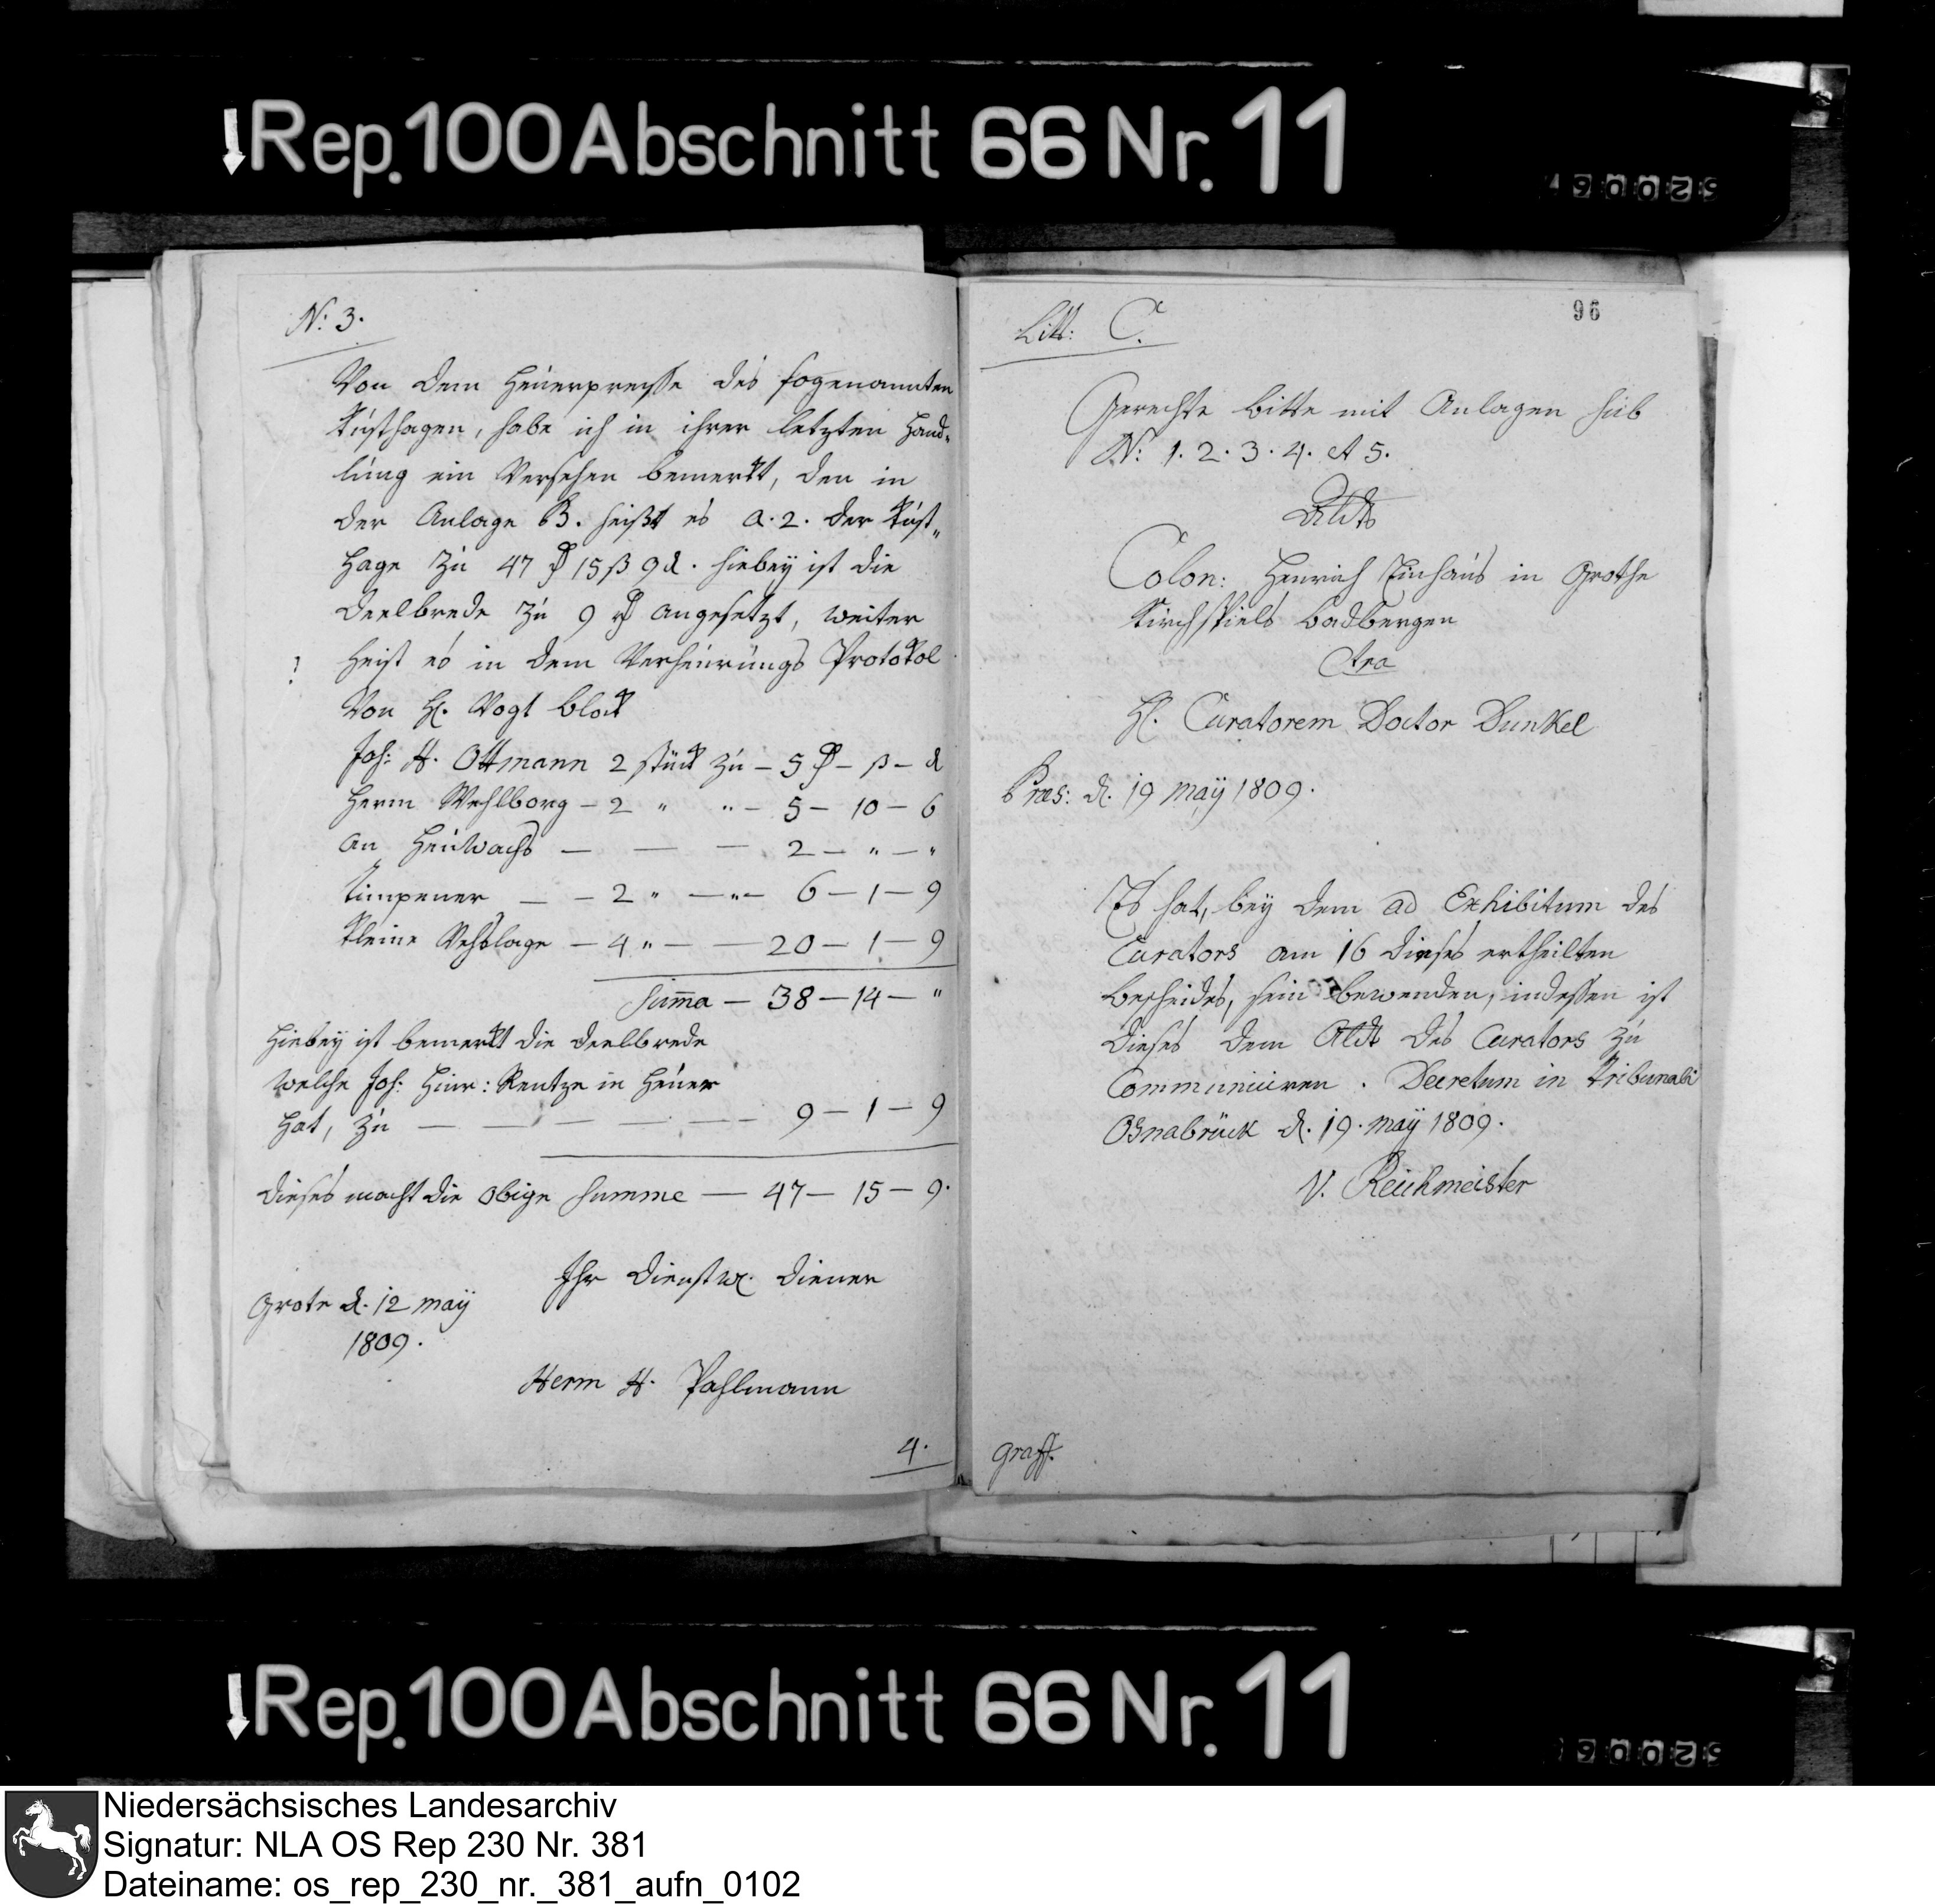 Rep. 100 Abschnitt 66 Nr. 11
N: 3.
Von dem Heuerpreisse des sogenannten
Kusthagen, habe ich in ihrer letzten Hand-
lung ein Versehen bemerkt, den in
der Anlage B. heißt es a. 2. der Kust„
hage zu 47 rt 15 ß 9 d. hiebey ist die
Deelbrede zu 9 rt angesetzt, weiter
heist es in dem Verheurungs Protokol
Von H. Vogt Block
Joh: H. Ottmann 2 stück zu – 5 rt – ß – d
Herm Wehlborg – 2 " " – 5 – 10 – 6
an Heuwachs — — — 2 — " — "
Timpener — — 2 " — " — 6 – 1 – 9
Kleine Vehslage — 4 " — — 20 – 1 – 9
Sum̄a — 38 – 14 – "
Hiebey ist bemerkt die Deelbrede
welche Joh: Hinr: Rentze in Heuer
hat, zu — — — — — 9 – 1 – 9
Dieses macht die obige Summe — 47 – 15 – 9.
Ihr Dienstw. Diener
Grote d. 12 maÿ
1809.
Herm H. Pahlmann
4.
96
Litt: C.
Gerechte bitte mit Anlagen sub
N: 1. 2. 3. 4. et 5.
Abts
Colon: Henrich Einhaus in Grothe
Kirchspiels Badbergen
Ctra
H. Curatorem Doctor Dunkel
Præs: d. 19 maÿ 1809.
Es hat, bey dem ad Exhibitum des
Curators am 16 dieses ertheilten
Bescheides, sein bewenden, indessen ist
dieses dem Abt des Curators zu
Communiciren. Decretum in Tribunali
Osnabrück d. 19. maÿ 1809.
V. Reichmeister
graff.
Rep. 100 Abschnitt 66 Nr. 11
Niedersächsisches Landesarchiv
Signatur: NLA OS Rep 230 Nr. 381
Dateiname: os_rep_230_nr._381_aufn_0102